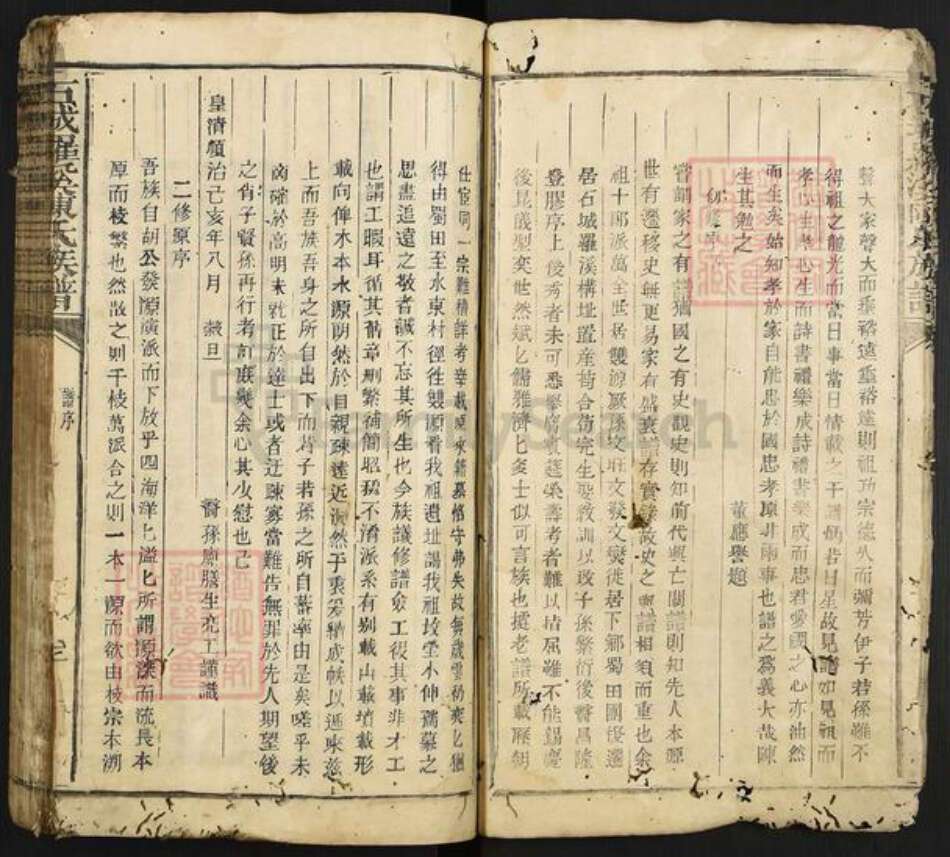 聲大家聲大而垂裕遠垂裕遠則祖功宗德久而彌芳伊子若孫雖不
得祖之龍光而當日事當日情載之干譜炳若日星故見譜如見祖而
孝心生孝心生而詩書禮樂成詩禮書樂成而忠君愛國之心亦油然
而生矣始知孝於家自能忠於國忠孝原非兩事也譜之為義大哉陳
生其勉之
董應譽題
修譜序
嘗謂家之有譜猶國之有史觀史則知前代興亡閱譜則知先人本源
世有遷移史無更易家有盛衰譜存實錄故史之與譜相須而重也余
祖十郎派萬全世居雙源厥孫文旺文發文煥徙居下鄉蜀田團後遷
居石城羅溪構址置産苟合苟完生聚教訓以及子孫繁衍後嗣昌隆
登膠序上俊秀者未可悉舉膺實筵榮壽考者難以枚屈雖不能錫慶
後昆儀型奕世然斌匕儒雅濟匕多士似可言族也據老譜所載聯朝
仕宦同一宗難稽詳考幸載源求籍墓恪守弗失故每歲雲礽奕匕猶
得由蜀田至水東村徑徃雙源看我祖遺址謁我祖坟塋小伸孺慕之
思盡追遠之敬者誠不忘其所生也今族議修譜僉工後其事非才工
也謂工暇耳循其舊章刪繁補簡昭穆不淆派系有别載山載墳載形
載向俾木本水源朗然於目親疎遠近淑然于衷爰輯成帙以遞來茲
上而吾族吾身之所自出下而肖子若孫之所自蕃率由是矣嗟乎未
商確於高明未就正於達士或者迂疎寡當難告無罪於先人期望後
之肖子賢孫再行考訂庶幾余心其少慰也已
嗣孫廩膳生亮工謹識
皇清順治己亥年八月 穀旦
二修原序
吾族自胡公發源潢派而下放乎四海洋匕溢匕所謂源深而流長本
厚而枝繁也然散之則千枝萬派合之則一本一源而欲由枝宗本溯
石城羅溪陳氏族譜
譜序